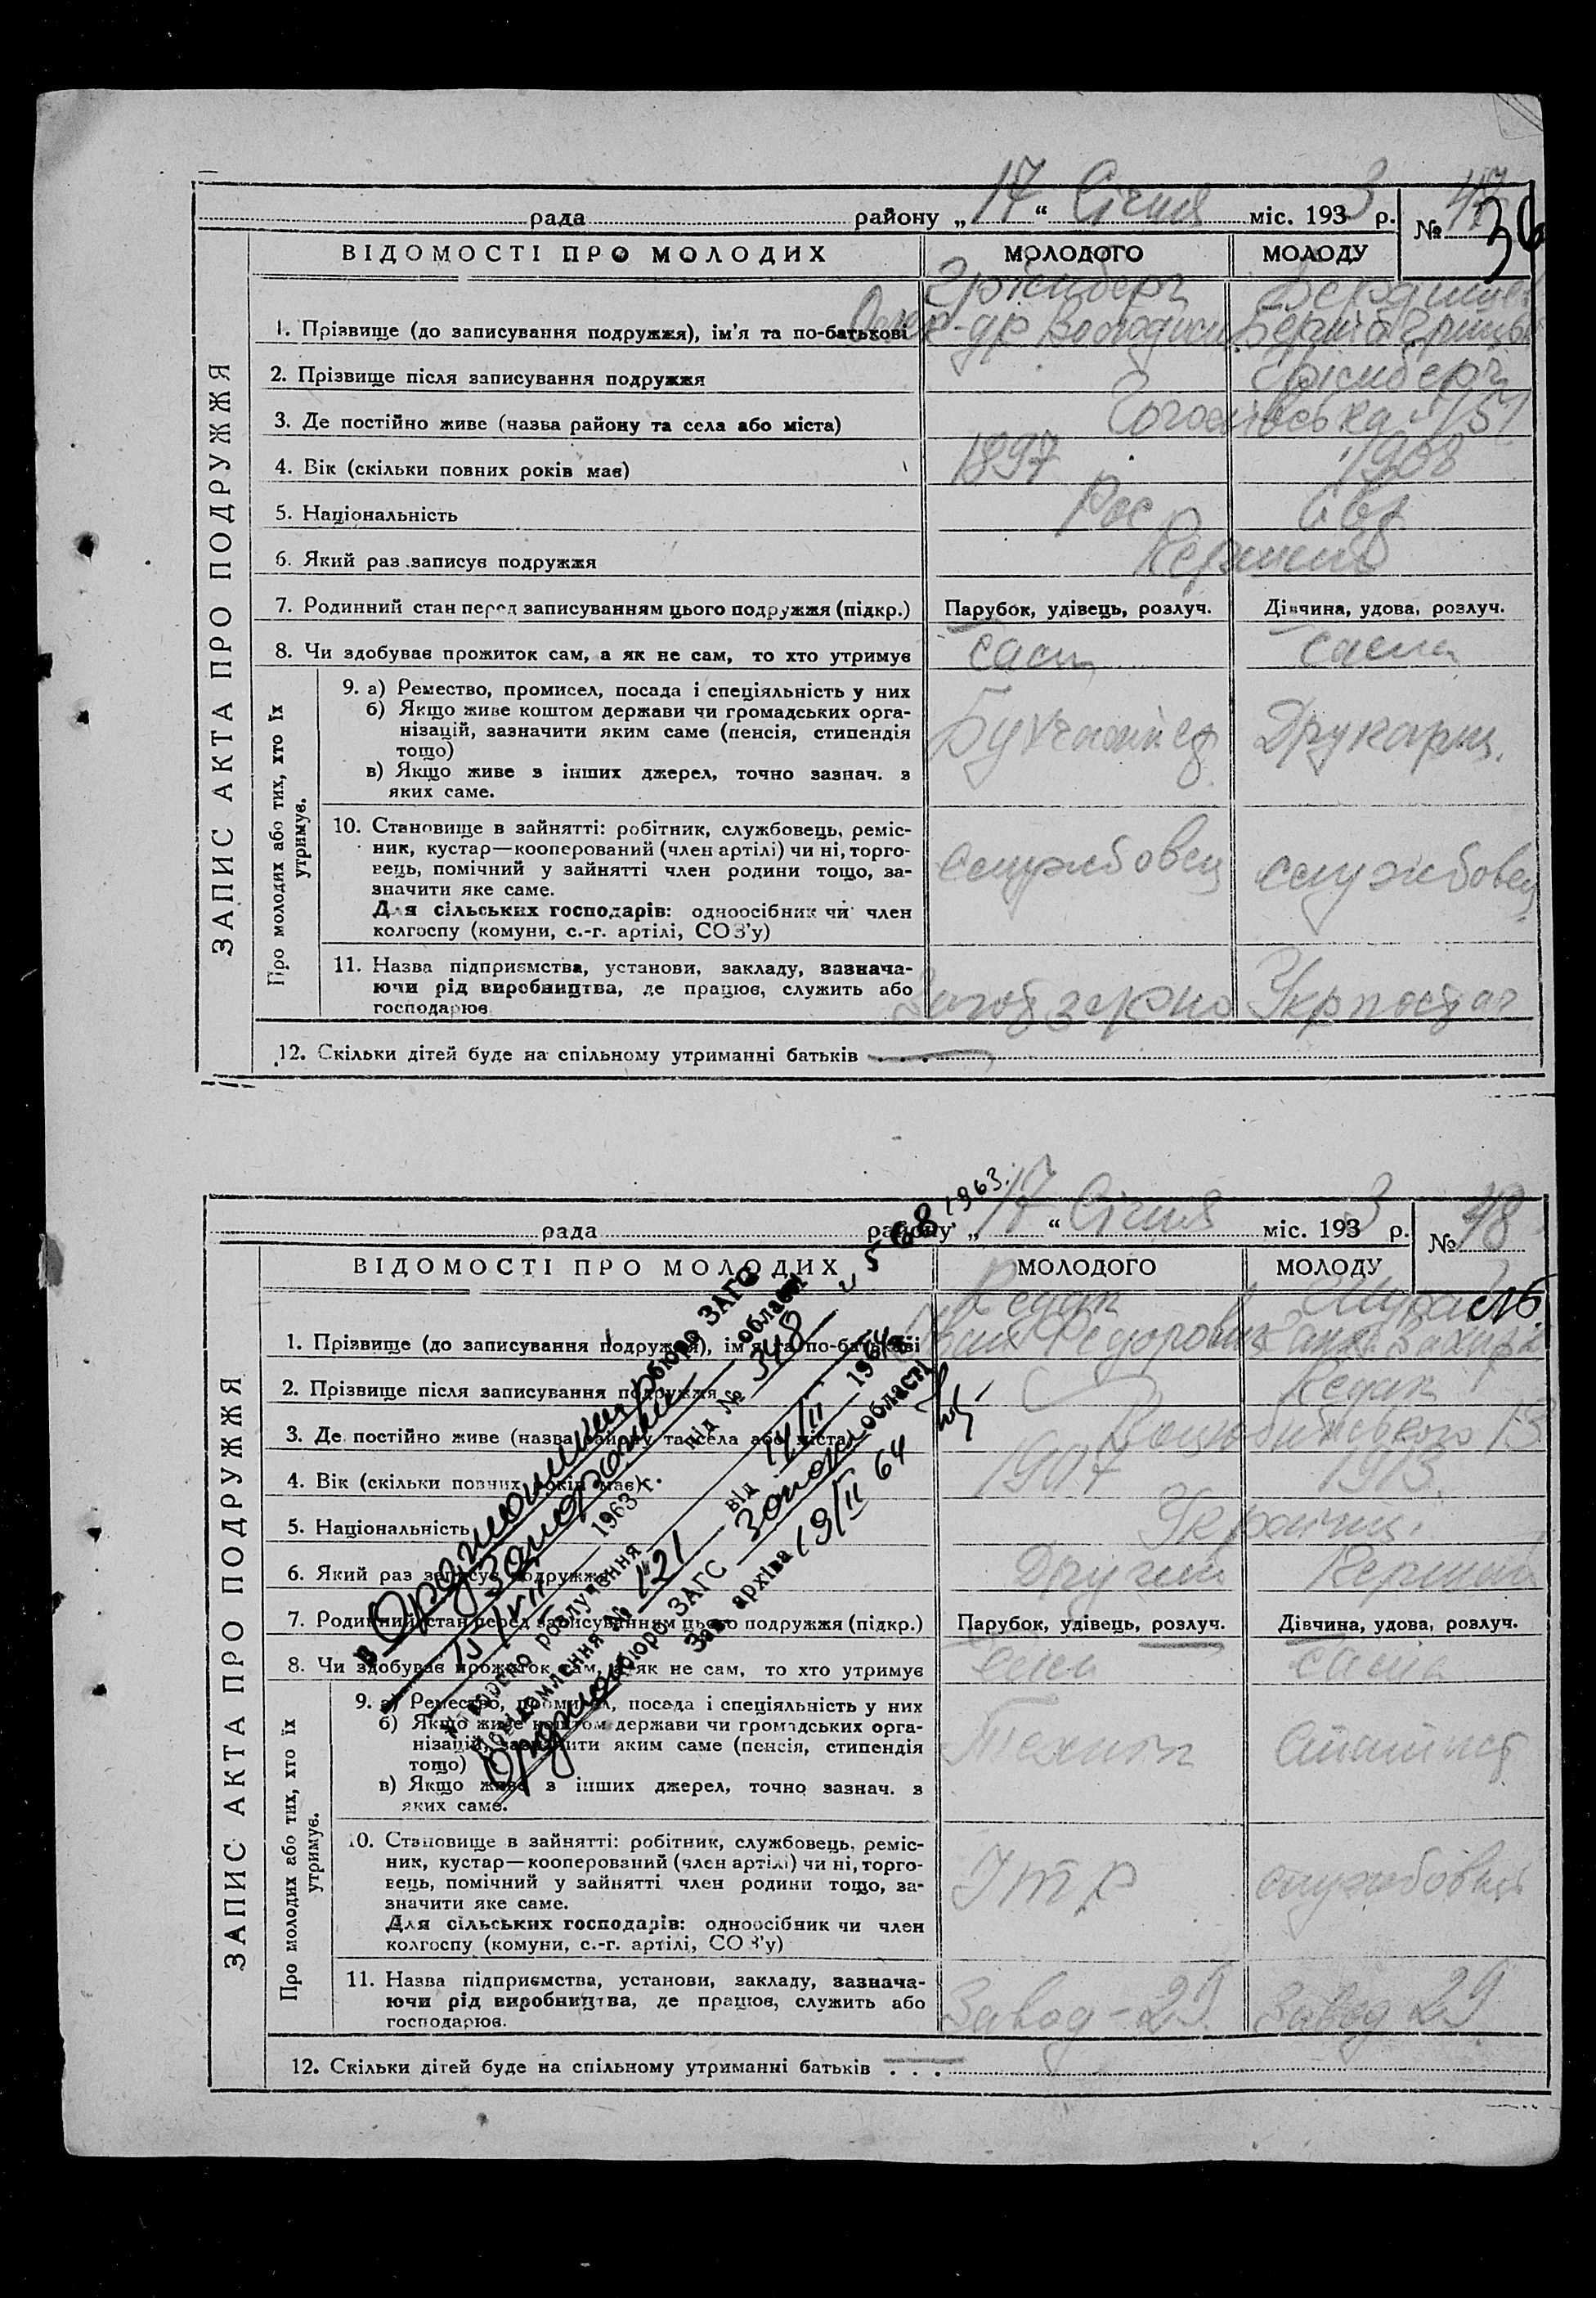 рада районỵ „17“ Січня міс. 1933 р. № 47
36
ЗАПИС АКТА ПРО ПОДРУЖЖЯ
ВІДОМОСТІ ПРО МОЛОДИХ МОЛОДОГО МОЛОДУ
Грінберг
1. Прізвище (до записування подружжя), ім'я та по-батькові
2. Прізвище після записування подружжя Грінберг
3. Де постійно живе (назва району та села або міста)
4. Вік (скільки повних років має) 1897 1908
5. Національність Рос
6. Який раз записує подружжя Перший
7. Родинний стан перед записуванням цього подружжя (підкр.) Парубок, удівець, розлуч. Дівчина, удова, розлуч.
8. Чи здобуває прожиток сам, а як не сам, то хто утримує сам сама
Про молодих або тих, хто їх утримує.
9. а) Ремество, промисел, посада і спеціяльність у них
б) Якщо живе коштом держави чи громадських орга-
нізацій, зазначити яким саме (пенсія, стипендія
тощо)
в) Якщо живе з інших джерел, точно зазнач. з
яких саме.
Бухгалтер Друкарщ.
10. Становище в зайнятті: робітник, службовець, реміс-
ник, кустар—кооперований (член артілі) чи ні, торго-
вець, помічний у зайнятті член родини тощо, за-
значити яке саме.
Для сільських господарів: одноосібник чи член
колгоспу (комуни, с.-г. артілі, СОЗ'у)
службовец службовец
11. Назва підприємства, установи, закладу, зазнача-
ючи рід виробництва, де працює, служить або
господарює
Заготзерно Укрпостач
12. Скільки дітей буде на спільному утриманні батьків —
рада району „17“ Січня міс. 1933 р. № 48
ЗАПИС АКТА ПРО ПОДРУЖЖЯ
ВІДОМОСТІ ПРО МОЛОДИХ МОЛОДОГО МОЛОДУ
Редак
1. Прізвище (до записування подружжя), ім'я та по-батькові Іван Федорович
2. Прізвище після записування подружжя Редак
3. Де постійно живе (назва району та села або міста) 13
4. Вік (скільки повних років має) 1907 1913
5. Національність Українці
6. Який раз записує подружжя Другий Перший
7. Родинний стан перед записуванням цього подружжя (підкр.) Парубок, удівець, розлуч. Дівчина, удова, розлуч.
8. Чи здобуває прожиток сам, а як не сам, то хто утримує сам сама
Про молодих або тих, хто їх утримує.
9. а) Ремество, промисел, посада і спеціяльність у них
б) Якщо живе коштом держави чи громадських орга-
нізацій, зазначити яким саме (пенсія, стипендія
тощо)
в) Якщо живе з інших джерел, точно зазнач. з
яких саме.
Технік
10. Становище в зайнятті: робітник, службовець, реміс-
ник, кустар—кооперований (член артілі) чи ні, торго-
вець, помічний у зайнятті член родини тощо, за-
значити яке саме.
Для сільських господарів: одноосібник чи член
колгоспу (комуни, с.-г. артілі, СОЗ'у)
ІТР службовець
11. Назва підприємства, установи, закладу, зазнача-
ючи рід виробництва, де працює, служить або
господарює.
Завод-29 Завод 29
12. Скільки дітей буде на спільному утриманні батьків —
в бюро ЗАГС
області
1963 г. під № 348
розлучення
Повідомлення № 121 від 14/II 1964
бюро ЗАГС області
Зав. архіва 19/II 64